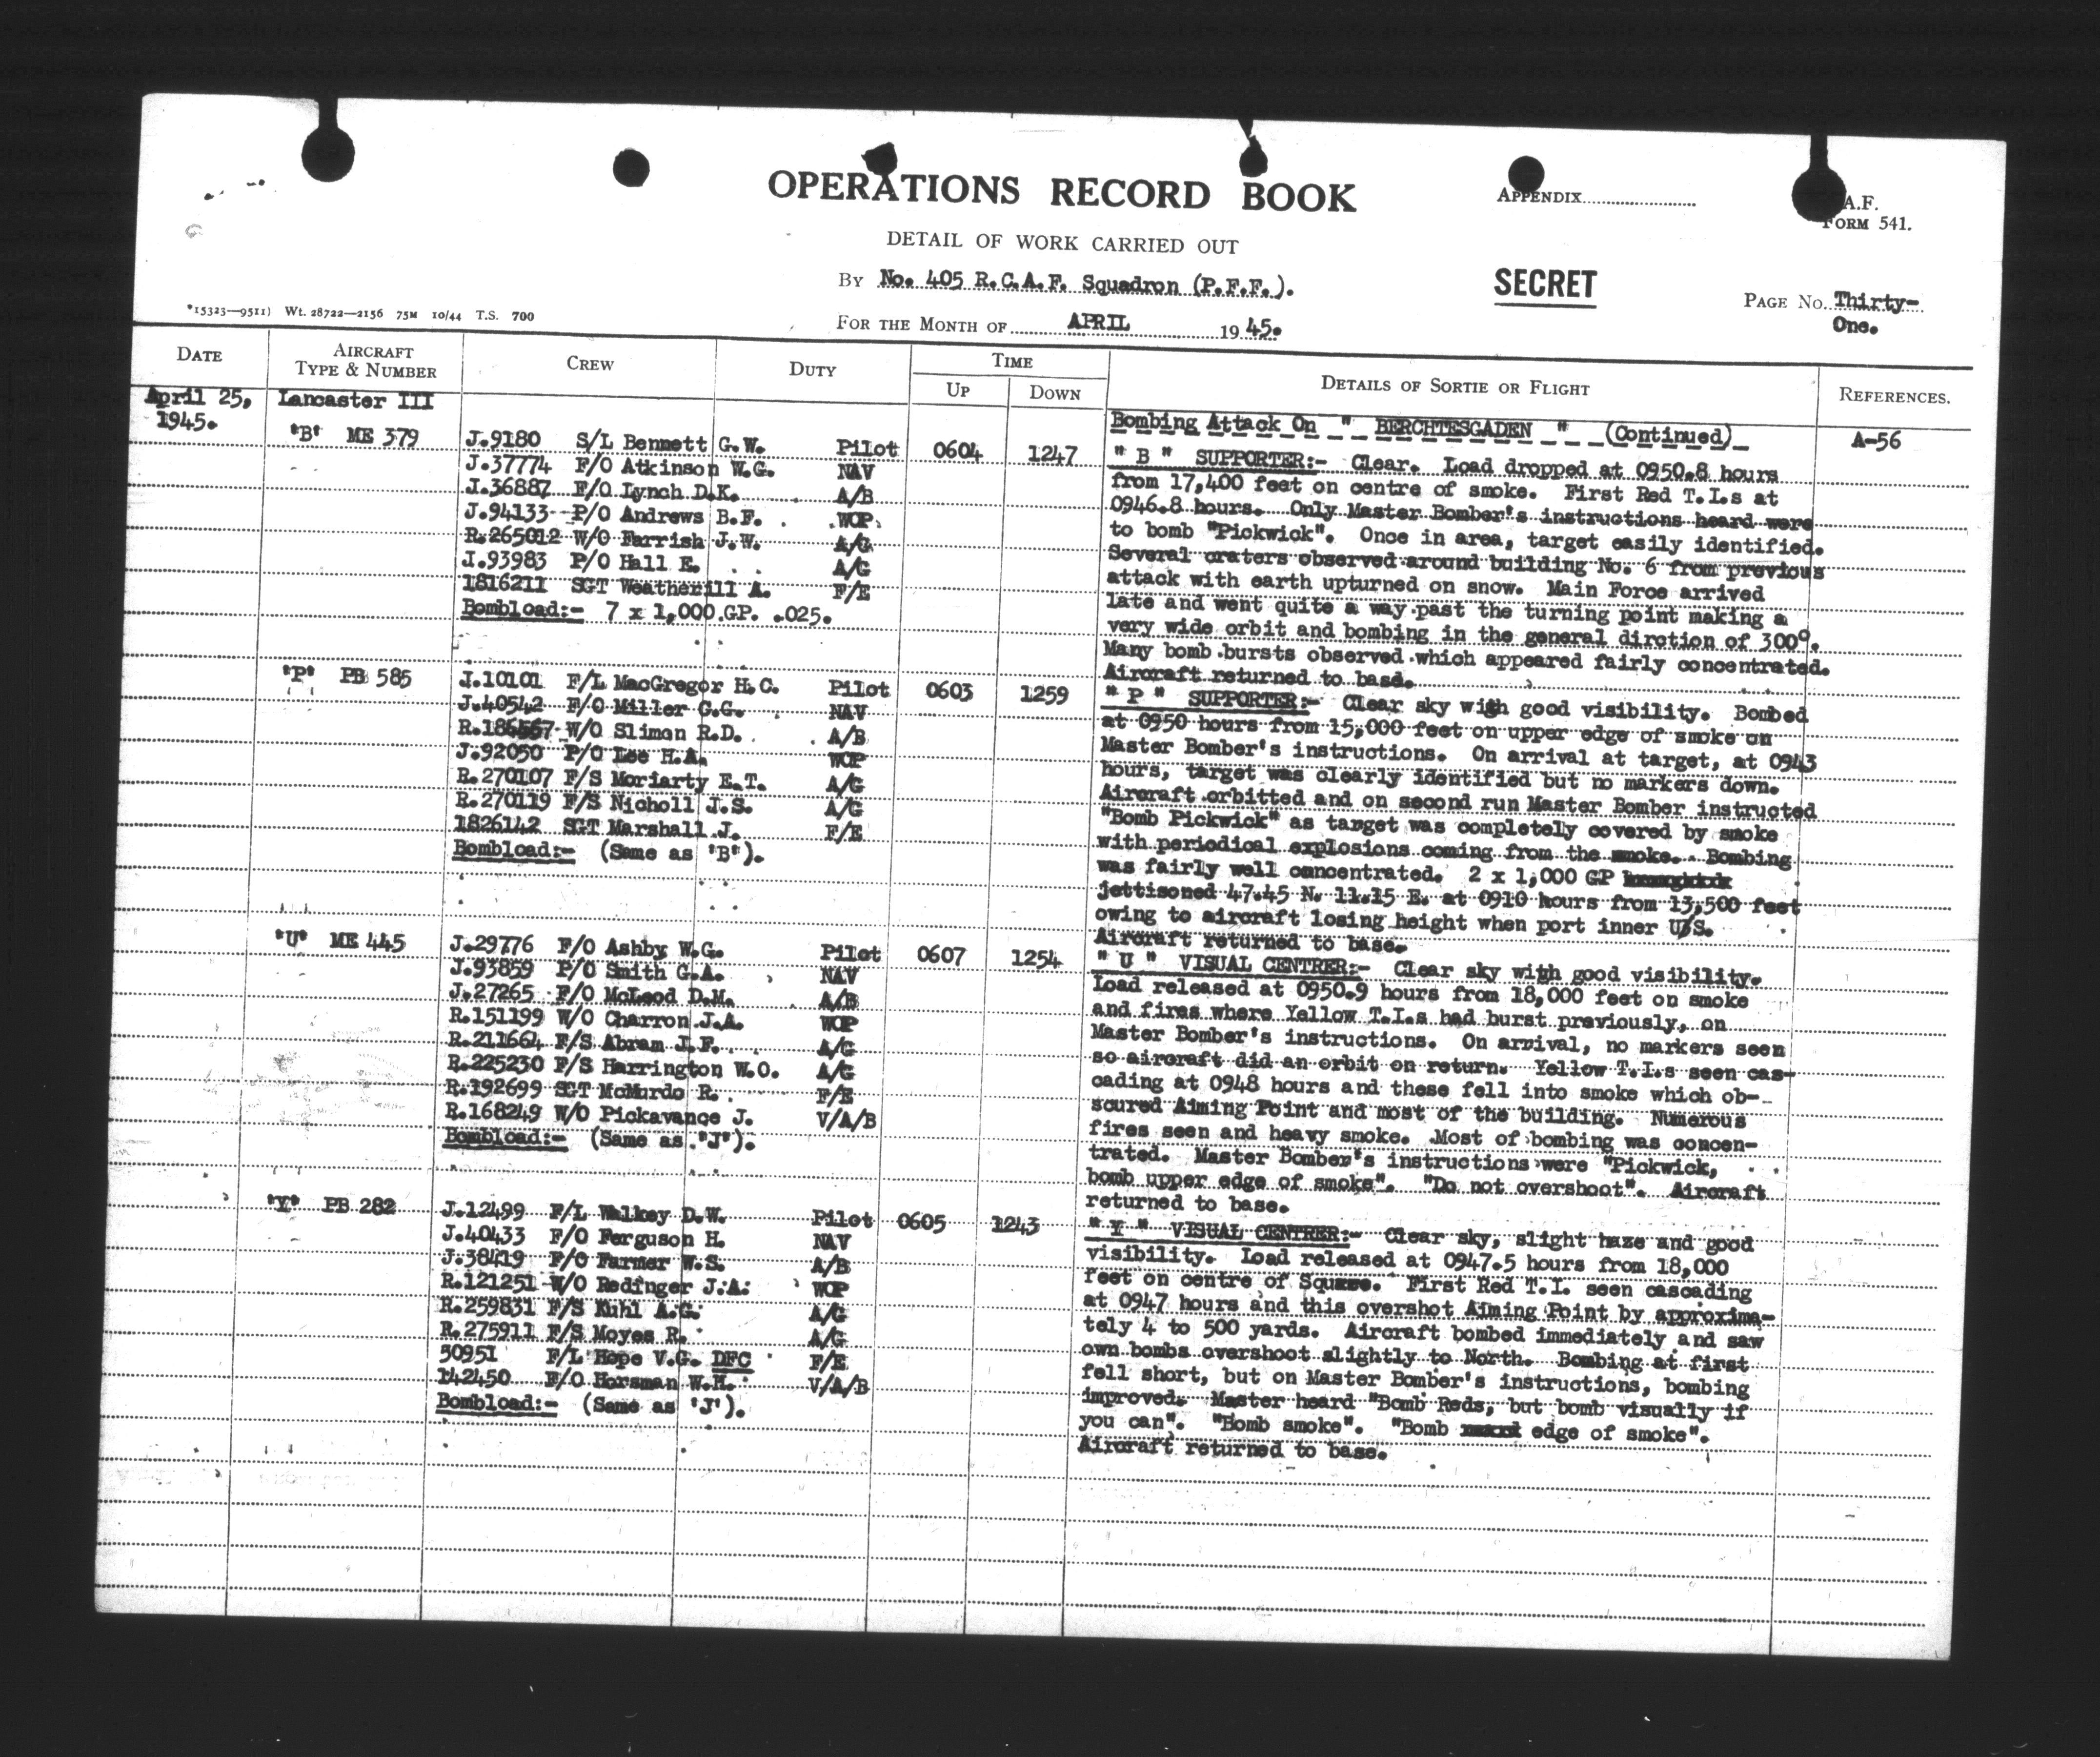 OPERATIONS RECORD BOOK
APPENDIX
A.F.
FORM 541.
DETAIL OF WORK CARRIED OUT
BY No. 405 R.C.A.F. Squadron (P.F.F.).
SECRET
PAGE No. Thirty-
One.
*15323—9511) Wt. 28722—2156 75M 10/44 T.S. 700
FOR THE MONTH OF APRIL 1945.
DATE
AIRCRAFT
TYPE & NUMBER
CREW
DUTY
TIME
UP
DOWN
DETAILS OF SORTIE OR FLIGHT
REFERENCES.
April 25,
1945.
Lancaster III
'B' ME 379
J.9180 S/L Bennett G.W. Pilot 0604 1247
J.37774 F/O Atkinson W.G. NAV
J.36887 F/O Lynch D.K. A/B
J.94133 P/O Andrews B.F. WOP
R.265012 W/O Farrish J.W. A/G
J.93983 P/O Hall E. A/G
1816211 SGT Weatherill A. F/E
Bombload:- 7 x 1,000 GP. .025.
Bombing Attack On " BERCHTESGADEN " (Continued)
A-56
" B " SUPPORTER:- Clear. Load dropped at 0950.8 hours
from 17,400 feet on centre of smoke. First Red T.I.s at
0946.8 hours. Only Master Bomber's instructions heard were
to bomb "Pickwick". Once in area, target easily identified.
Several craters observed around building No. 6 from previous
attack with earth upturned on snow. Main Force arrived
late and went quite a way past the turning point making a
very wide orbit and bombing in the general dirction of 300°.
Many bomb bursts observed which appeared fairly concentrated.
Aircraft returned to base.
'P' PB 585
J.10101 F/L MacGregor H.C. Pilot 0603 1259
J.40542 F/O Miller G.G. NAV
W/O Slimon R.D. A/B
J.92050 P/O Lee H.A. WOP
R.270107 F/S Moriarty E.T. A/G
R.270119 F/S Nicholl J.S. A/G
1826142 SGT Marshall J. F/E
Bombload:- (Same as 'B').
" P " SUPPORTER:- Clear sky with good visibility. Bombed
at 0950 hours from 15,000 feet on upper edge of smoke on
Master Bomber's instructions. On arrival at target, at 0943
hours, target was clearly identified but no markers down.
Aircraft orbitted and on second run Master Bomber instructed
"Bomb Pickwick" as target was completely covered by smoke
with periodical explosions coming from the smoke. Bombing
was fairly well concentrated. 2 x 1,000 GP
jettisoned 47.45 N. 11.15 E. at 0910 hours from 13,500 feet
owing to aircraft losing height when port inner U/S.
Aircraft returned to base.
'U' ME 445
J.29776 F/O Ashby W.G. Pilot 0607 1254
J.93859 P/O Smith G.A. NAV
J.27265 F/O McLeod D.M. A/B
R.151199 W/O Charron J.A. WOP
R.211664 F/S Abram J.F. A/G
R.225230 F/S Harrington W.O. A/G
R.192699 SGT McMurdo R. F/E
R.168249 W/O Pickavance J. V/A/B
Bombload:- (Same as 'J').
" U " VISUAL CENTRER:- Clear sky with good visibility.
Load released at 0950.9 hours from 18,000 feet on smoke
and fires where Yellow T.I.s had burst previously, on
Master Bomber's instructions. On arrival, no markers seen
so aircraft did an orbit on return. Yellow T.I.s seen cas-
cading at 0948 hours and these fell into smoke which ob-
scured Aiming Point and most of the building. Numerous
fires seen and heavy smoke. Most of bombing was concen-
trated. Master Bomber's instructions were "Pickwick,
bomb upper edge of smoke". "Do not overshoot". Aircraft
returned to base.
'Y' PB 282
J.12499 F/L Walkey D.W. Pilot 0605 1243
J.40433 F/O Ferguson H. NAV
J.38419 F/O Farmer W.S. A/B
R.121251 W/O Redinger J.A. WOP
R.259831 F/S Kuhl A.G. A/G
R.275911 F/S Moyes R. A/G
50951 F/L Hope V.G. DFC F/E
142450 F/O Horsman W.H. V/A/B
Bombload:- (Same as 'J').
" Y " VISUAL CENTRER:- Clear sky, slight haze and good
visibility. Load released at 0947.5 hours from 18,000
feet on centre of Square. First Red T.I. seen cascading
at 0947 hours and this overshot Aiming Point by approxima-
tely 4 to 500 yards. Aircraft bombed immediately and saw
own bombs overshoot slightly to North. Bombing at first
fell short, but on Master Bomber's instructions, bombing
improved. Master heard "Bomb Reds, but bomb visually if
you can". "Bomb smoke". "Bomb edge of smoke".
Aircraft returned to base.